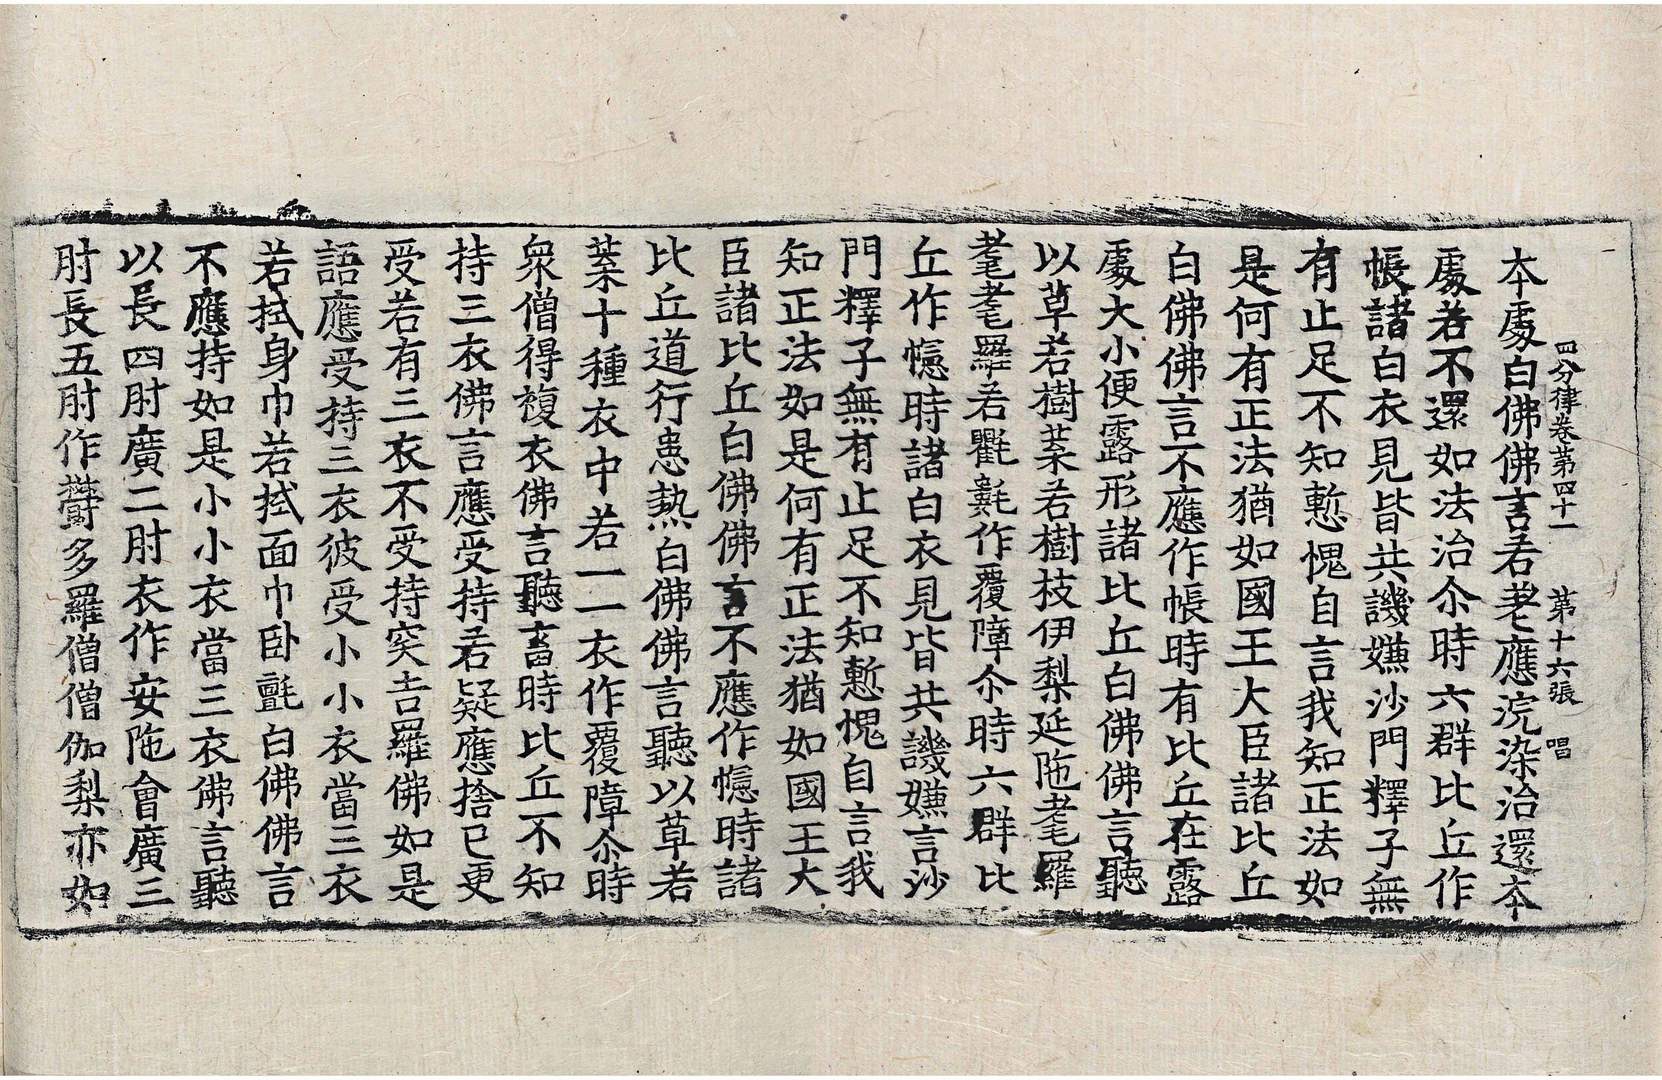 四分律卷第四十一 第十六張 唱
本處白佛佛言若老應浣染治還本
處若不還如法治尒時六群比丘作
帳諸白衣見皆共譏嫌沙門釋子無
有止足不知慙愧自言我知正法如
是何有正法猶如國王大臣諸比丘
白佛佛言不應作帳時有比丘在露
處大小便露形諸比丘白佛佛言聽
以草若樹葉若樹枝伊梨延陁耄羅
耄耄羅若氍毹作覆障尒時六群比
丘作幰時諸白衣見皆共譏嫌言沙
門釋子無有止足不知慙愧自言我
知正法如是何有正法猶如國王大
臣諸比丘白佛佛言不應作幰時諸
比丘道行患熱白佛佛言聽以草若
葉十種衣中若一一衣作覆障尒時
衆僧得複衣佛言聽畜時比丘不知
持三衣佛言應受持若疑應捨已更
受若有三衣不受持突吉羅佛如是
語應受持三衣彼受小小衣當三衣
若拭身巾若拭面巾卧氈白佛佛言
不應持如是小小衣當三衣佛言聽
以長四肘廣二肘衣作安陁會廣三
肘長五肘作欝多羅僧僧伽梨亦如